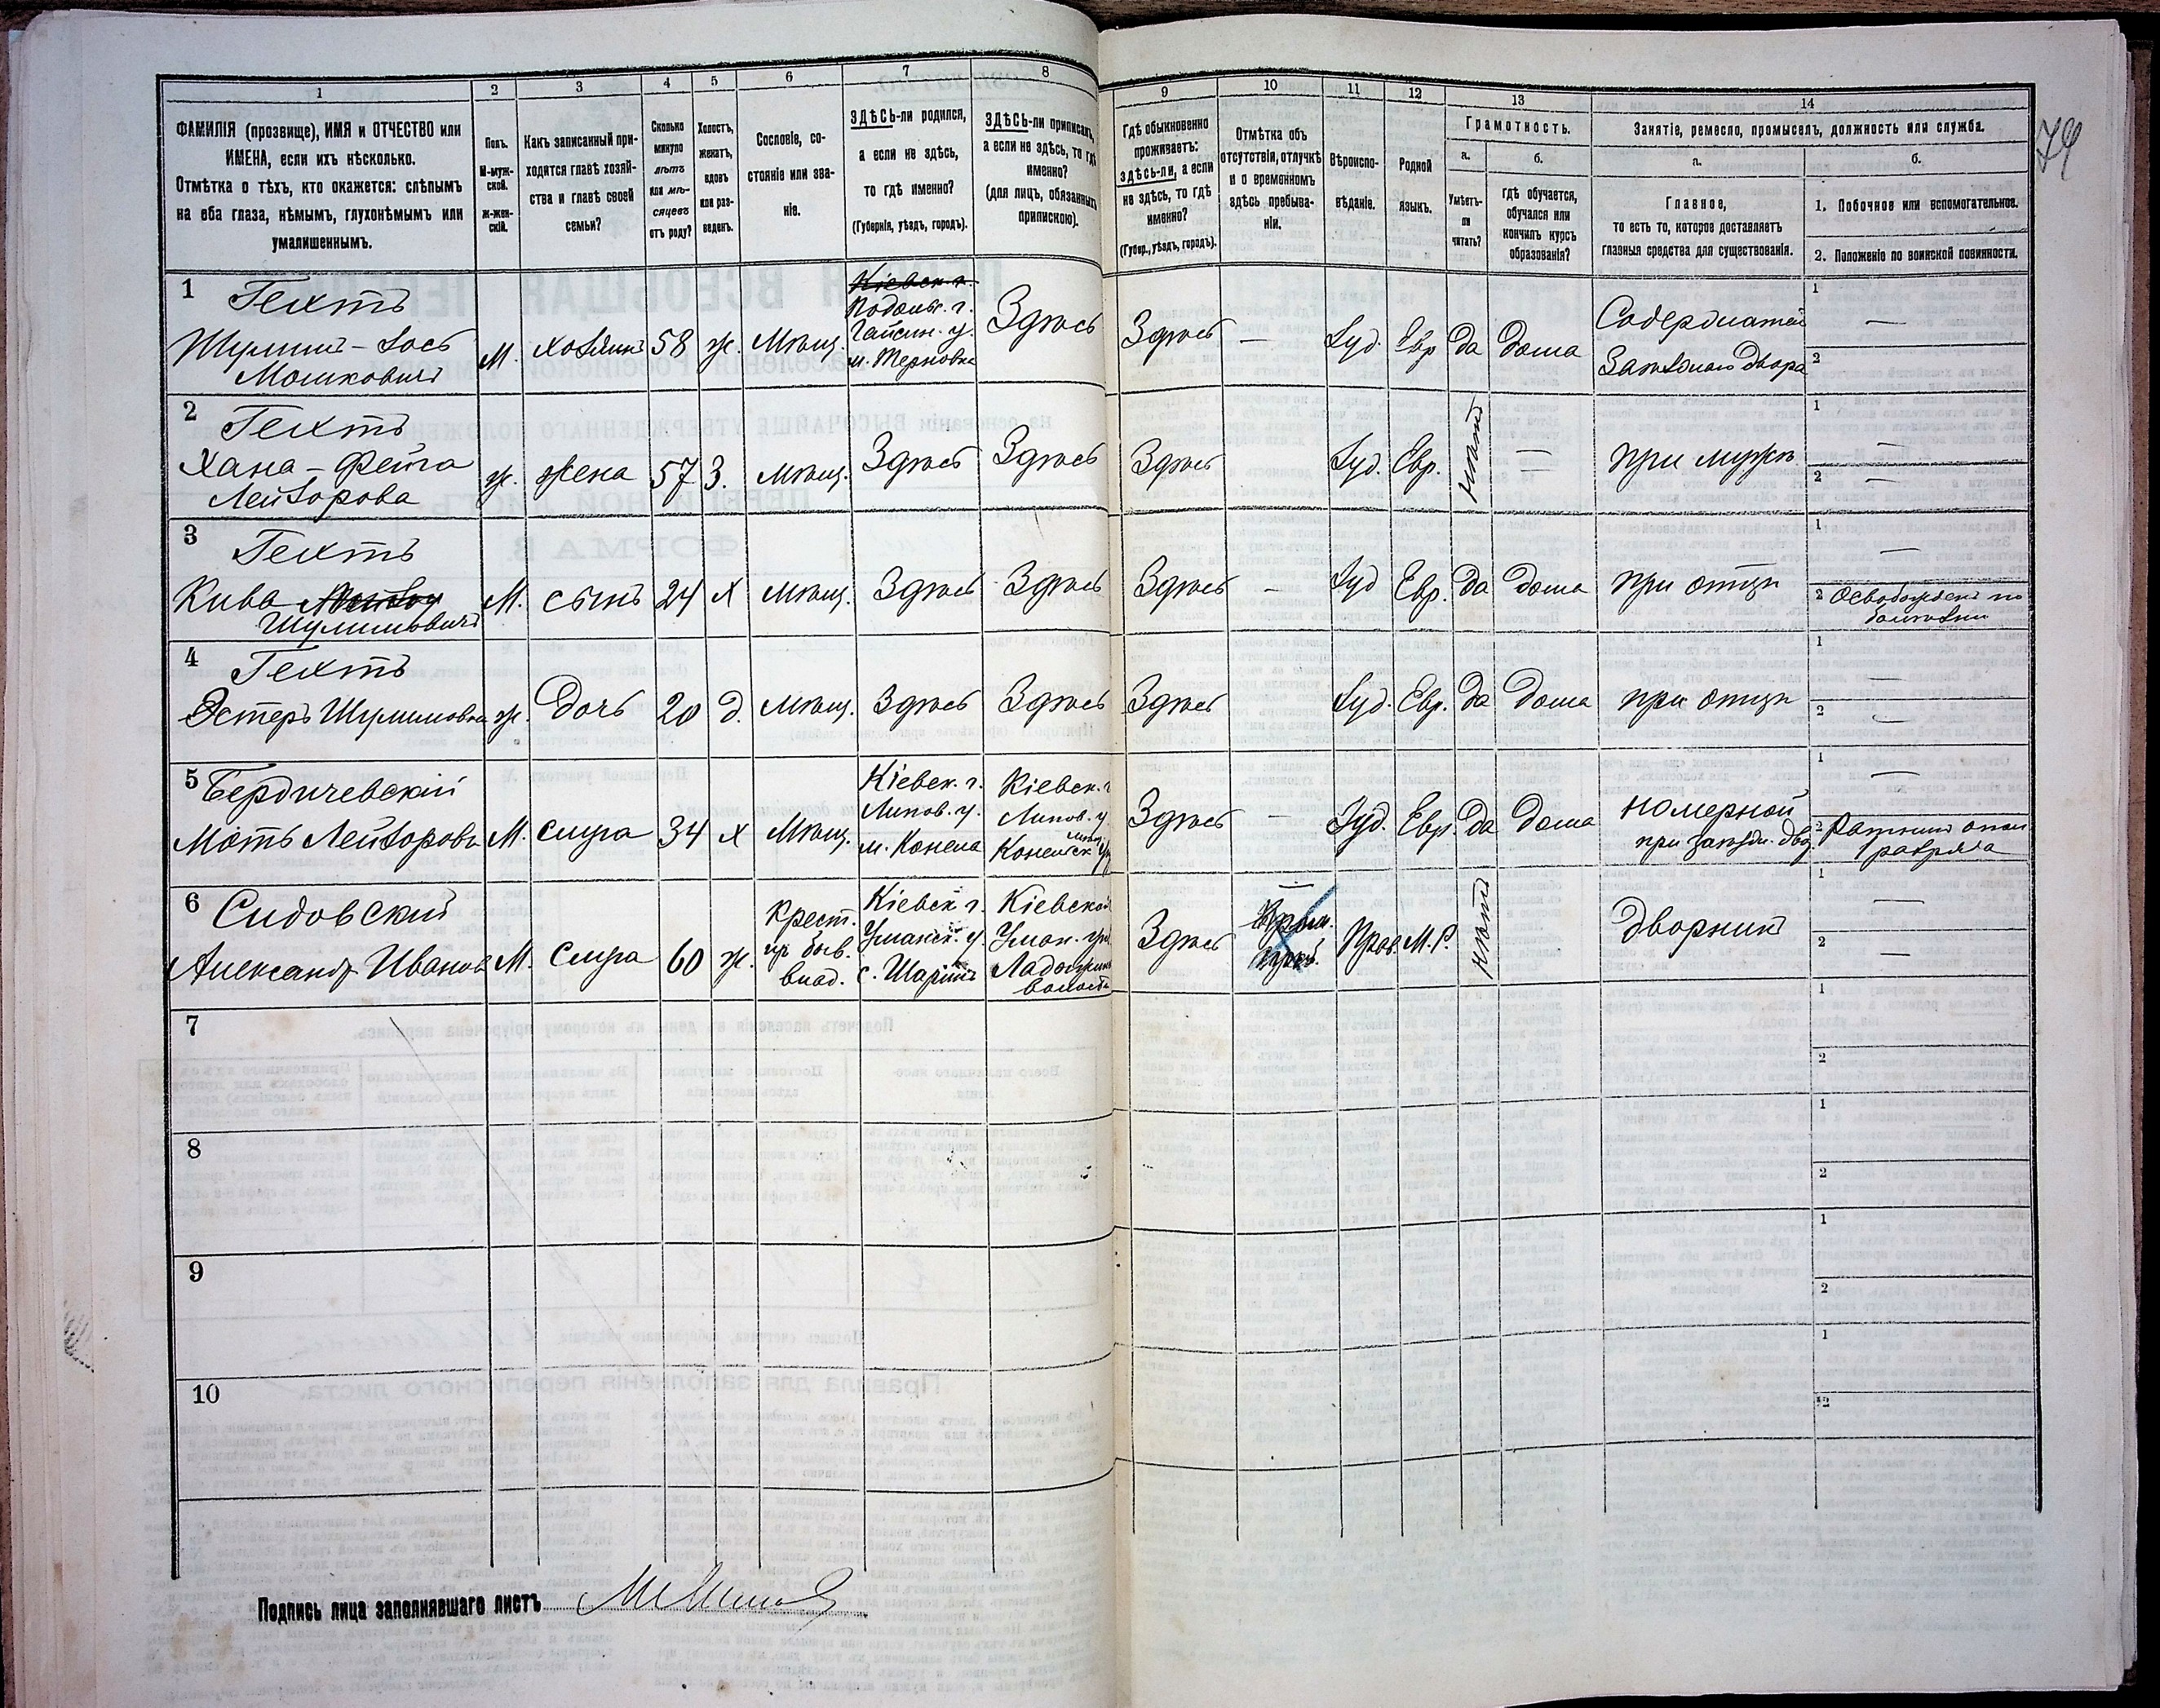 74
1
2
3
4
5
6
7
8
9
10
11
12
13
14
ФАМИЛІЯ (прозвище), ИМЯ и ОТЧЕСТВО или
ИМЕНА, если ихъ нѣсколько.
Отмѣтка о тѣхъ, кто окажется: слѣпымъ
на оба глаза, нѣмымъ, глухонѣмымъ или
умалишеннымъ.
Полъ.
М-муж-
ской.
ж-жен-
скій.
Какъ записанный при-
ходится главѣ хозяй-
ства и главѣ своей
семьи?
Сколько
минуло
лѣтъ
или мѣ-
сяцевъ
отъ роду?
Холостъ,
женатъ,
вдовъ
или раз-
веденъ.
Сословіе, со-
стояніе или зва-
ніе.
ЗДѢСЬ-ли родился,
а если не здѣсь,
то гдѣ именно?
(Губернія, уѣздъ, городъ).
ЗДѢСЬ-ли приписанъ,
а если не здѣсь, то гдѣ
именно?
(для лицъ, обязанныхъ
припискою).
Гдѣ обыкновенно
проживаетъ:
здѣсь-ли, а если
не здѣсь, то гдѣ
именно?
(Губер., уѣздъ, городъ).
Отмѣтка объ
отсутствіи, отлучкѣ
и о временномъ
здѣсь пребыва-
ніи.
Вѣроиспо-
вѣданіе.
Родной
языкъ.
Грамотность.
а.
Умѣетъ-
ли
читать?
б.
Гдѣ обучается,
обучался или
кончилъ курсъ
образованія?
Занятіе, ремесло, промыселъ, должность или служба.
а.
Главное,
то есть то, которое доставляетъ
главныя средства для существованія.
б.
1. Побочное или вспомогательное.
2. Положеніе по воинской повинности.
1
Гехтъ
Шулимъ-Iосъ
Мошковичъ
М.
хозяинъ
58
ж.
Мѣщ.
Кіевск. г.
Подольс. г.
Гайсин. у.
м. Терновка
Здѣсь
Здѣсь
—
Iуд.
Евр
да
дома
Содержатель
Заѣзжаго двора
1 —
2
2
Гехтъ
Хана-Фейга
Лейзорова
ж.
жена
57
З.
Мѣщ.
Здѣсь
Здѣсь
Здѣсь
Iуд.
Евр.
нѣтъ
—
при мужѣ
1 —
2 —
3
Гехтъ
Кива
Шулимовичъ
М.
сынъ
24
Х
мѣщ.
Здѣсь
Здѣсь
Здѣсь
—
Iуд
Евр.
да
дома
при отцѣ
1 —
2 Освобожденъ по
болѣзни
4
Гехтъ
Эстеръ Шулимовна
ж.
Дочь
20
д.
мѣщ.
Здѣсь
Здѣсь
Здѣсь
Iуд.
Евр.
да
дома
при отцѣ
1 —
2 —
5
Бердичевскій
Моть Лейзоровъ
М.
слуга
34
Х
Мѣщ.
Кіевск. г.
Липов. у.
м. Конела
Кіевск. г
Липов. у
Здѣсь
—
Iуд.
Евр.
да
дома
номерной
при заѣзж. двор
1 —
2 Ратникъ опол
разряда
6
Сидовскій
Александр Иванов
М.
слуга
60
ж.
крест.
из быв.
влад.
Кіевск г.
Уманск. у.
Кіевской
Уман. у
волость
Здѣсь
—
Прав.
М. Р.
нѣтъ
Дворникъ
1 —
2 —
7
1
2
8
1
2
9
1
2
10
1
2
Подпись лица заполнявшаго листъ